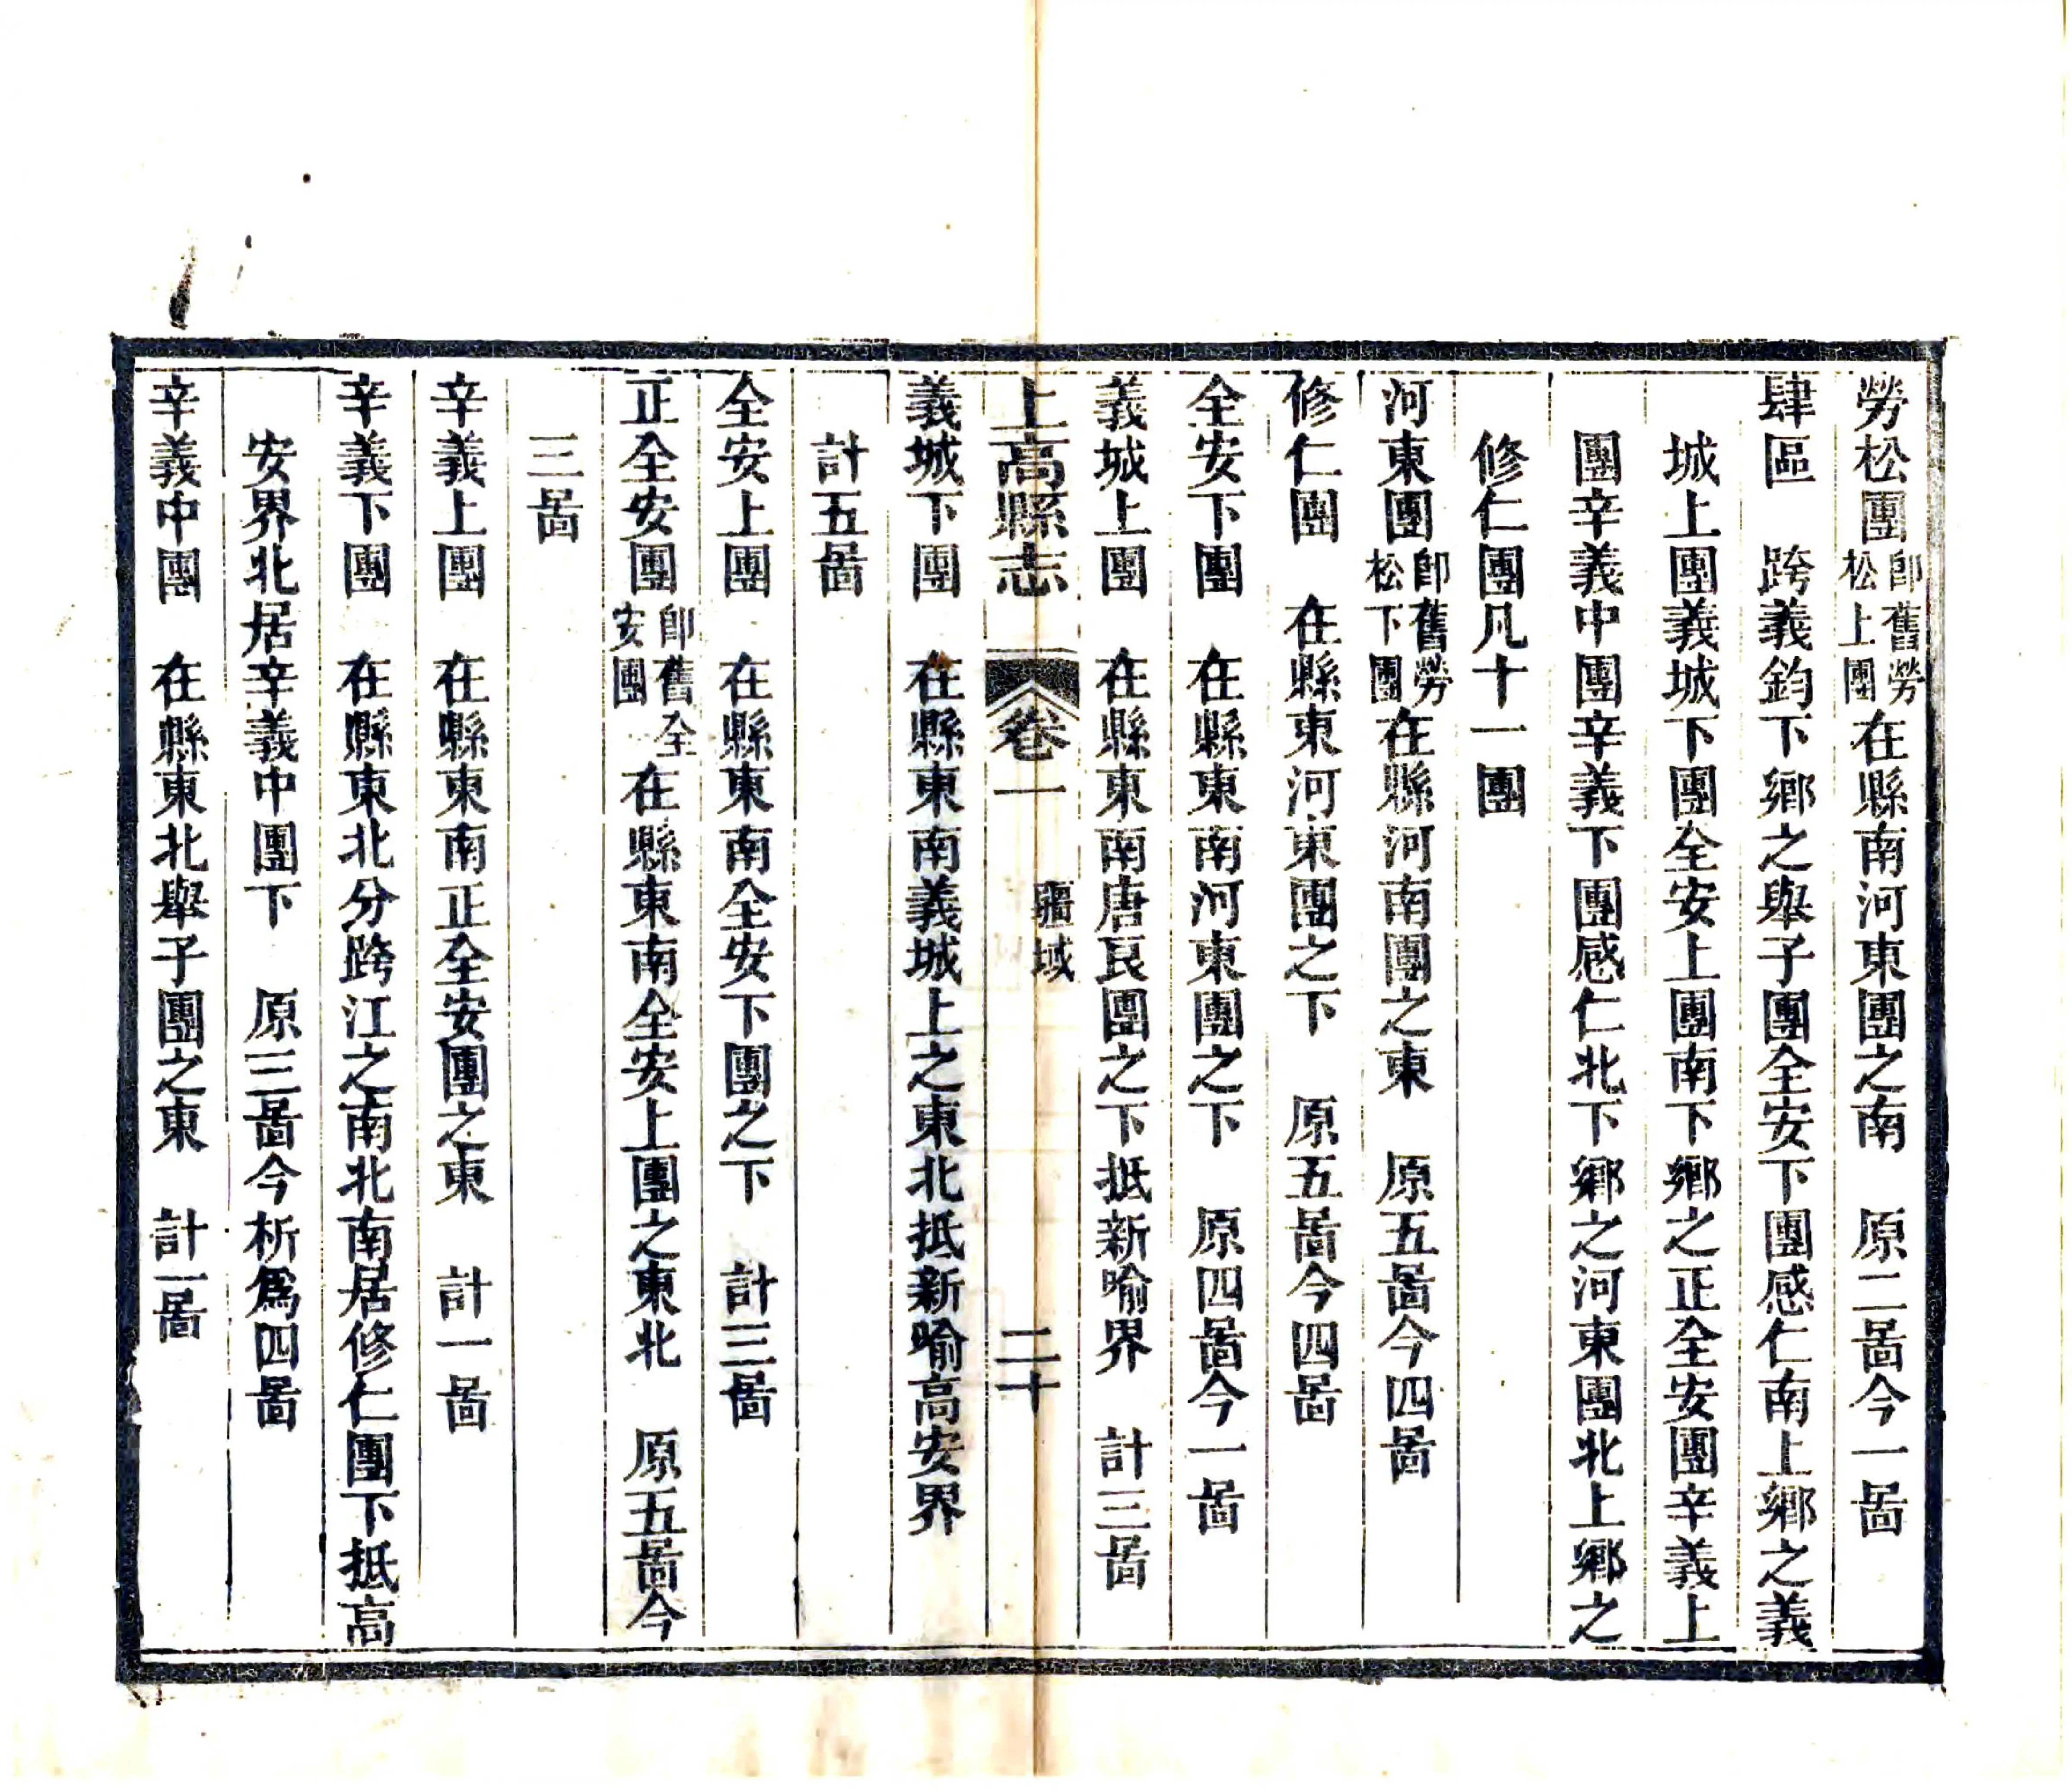 勞松團即舊勞松上團在縣南河東團之南　原二啚今一啚
肆區　跨義鈞下鄉之舉子團全安下團感仁南上鄉之義
城上團義城下團全安上團南下鄉之正全安團辛義上
團辛義中團辛義下團感仁北下鄉之河東團北上鄉之
修仁團凡十一團
河東團即舊勞松下團在縣河南團之東　原五啚今四啚
修仁團　在縣東河東團之下　原五啚今四啚
全安下團　在縣東南河東團之下　原四啚今一啚
義城上團　在縣東南唐良團之下抵新喻界　計三啚
上高縣志　卷一　疆域　二十
義城下團　在縣東南義城上之東北抵新喻高安界
計五啚
全安上團　在縣東南全安下團之下　計三啚
正全安團即舊全安團在縣東南全安上團之東北　原五啚今
三啚
辛義上團　在縣東南正全安團之東　計一啚
辛義下團　在縣東北分跨江之南北南居修仁團下抵高
安界北居辛義中團下　原三啚今析爲四啚
辛義中團　在縣東北舉子團之東　計一啚